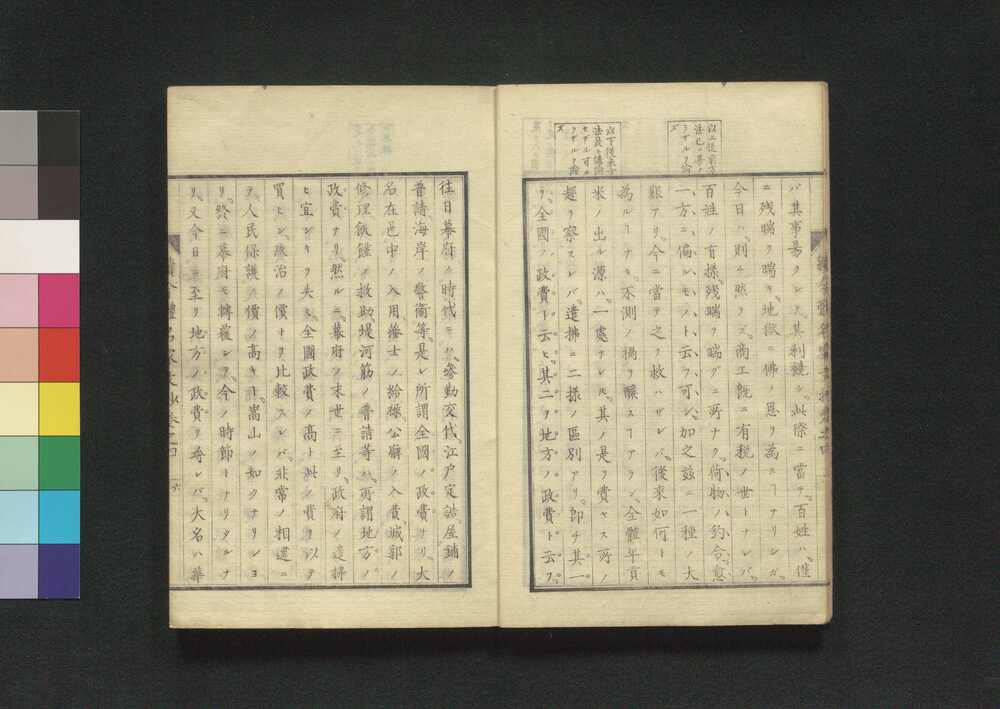 バ其事易クシテ其利饒シ此際ニ當テ百姓ハ僅
ニ残喘ヲ喘キ地獄ニ佛ノ思ヲ為スヿナリシガ
今日ハ則チ然ラズ商工既ニ有税ノ世トナレバ
百姓ノ有様残喘ヲ喘グニ所ナク荷物ハ約合愈
一方ニ偏シハモノト云フ可シ加之茲ニ一種ノ大
艱アリ今ニ當テ之ヲ救ハザレバ後來如何トモ
為ルヿナキ不測ノ禍ヲ醸スヿアラン全體年貢
米ノ出ル源ハ一處ナレ𪜈其ノ是ヲ費ヤス所ノ
趣ヲ察スレバ遣拂ニ二樣ノ區別アリ即チ其一
ヲ全國ノ政費ト云ヒ其二ヲ地方ノ政費ト云フ
往日幕府ノ時代ニハ參勤交代江戸定詰屋鋪ノ
普請海岸ノ警衛等是レ所謂全國ノ政費ナリ大
名在邑中ノ入用藩士ノ給祿公廨ノ入費城郭ノ
修理飢饉ノ救助堤河筋ノ普請等ハ所謂地方ノ
政費ナリ然ルニ幕府ノ末世ニ至リ政府ノ遣拂
ヒ宜シキヲ失ヒ全國政費ノ高ト此ノ費ヲ以テ
買ヒシ政治ノ價トヲ比較スレバ非常ノ相違ニ
テ人民保護ノ價ノ高キヿ嵩山ノ如クナリシヨ
リ終ニ幕府モ轉覆シテ今ノ時節トナリタルナ
リ又今日ニ至リ地方ノ政費ヲ尋レバ大名ハ華